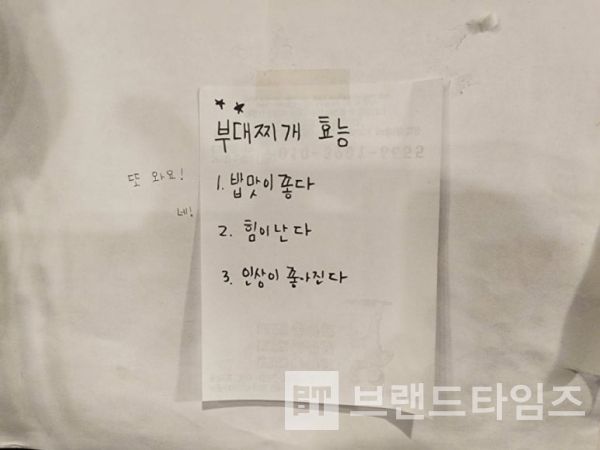 부대찌개 효능
1. 밥맛이 좋다
2. 힘이 난다
3. 인상이 좋아진다
또 와요!
네!
BT 브랜드타임즈